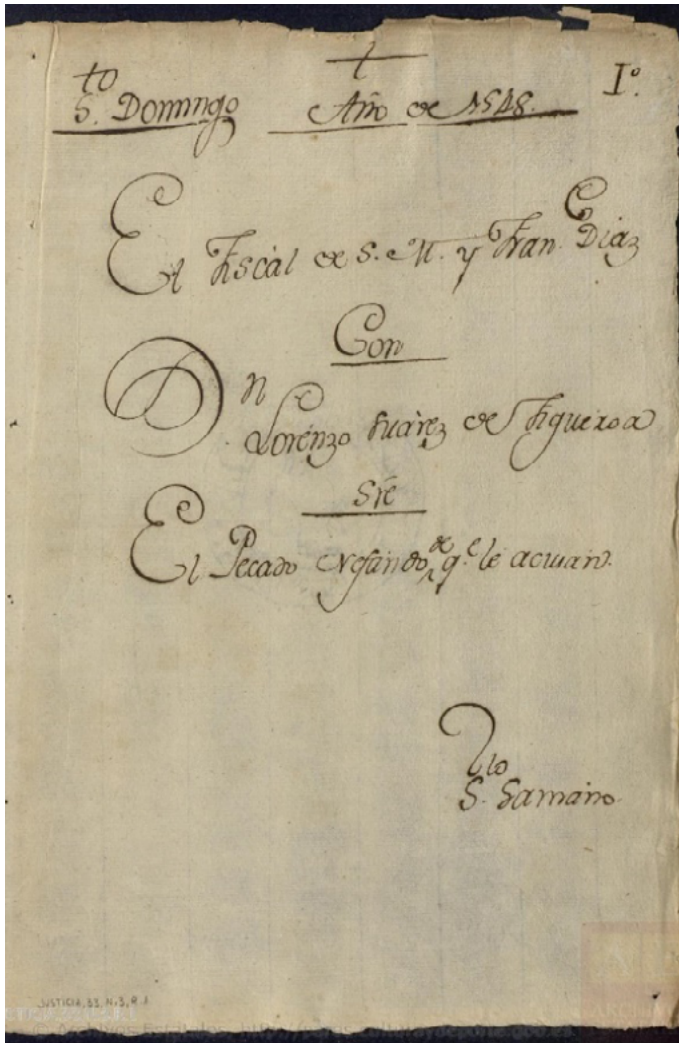 †
S.to Domingo Año de 1548. I.º
El Fiscal de S. M. y Fran.co Diaz
Con
D.n Lorenzo Suàrez de Figueroa
Sre
El Pecado Nefando de q.e le acusan.
S. Samano
JUSTICIA, 83, N.3, R.1